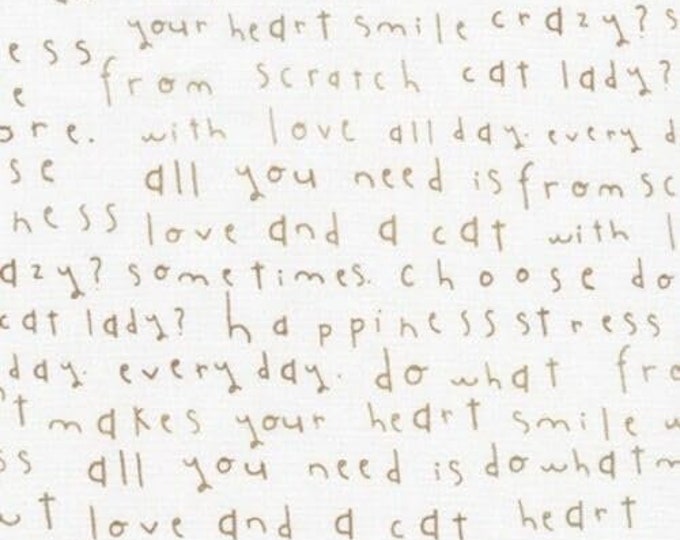 your heart smile crazy? s
ess
e from scratch cat lady?
ore. with love all day. every d
se all you need is from sc
ness love and a cat with l
azy? sometimes. choose do
cat lady? happiness stress
day. every day. do what fro
't makes your heart smile w
ss all you need is do what m
ut love and a cat heart